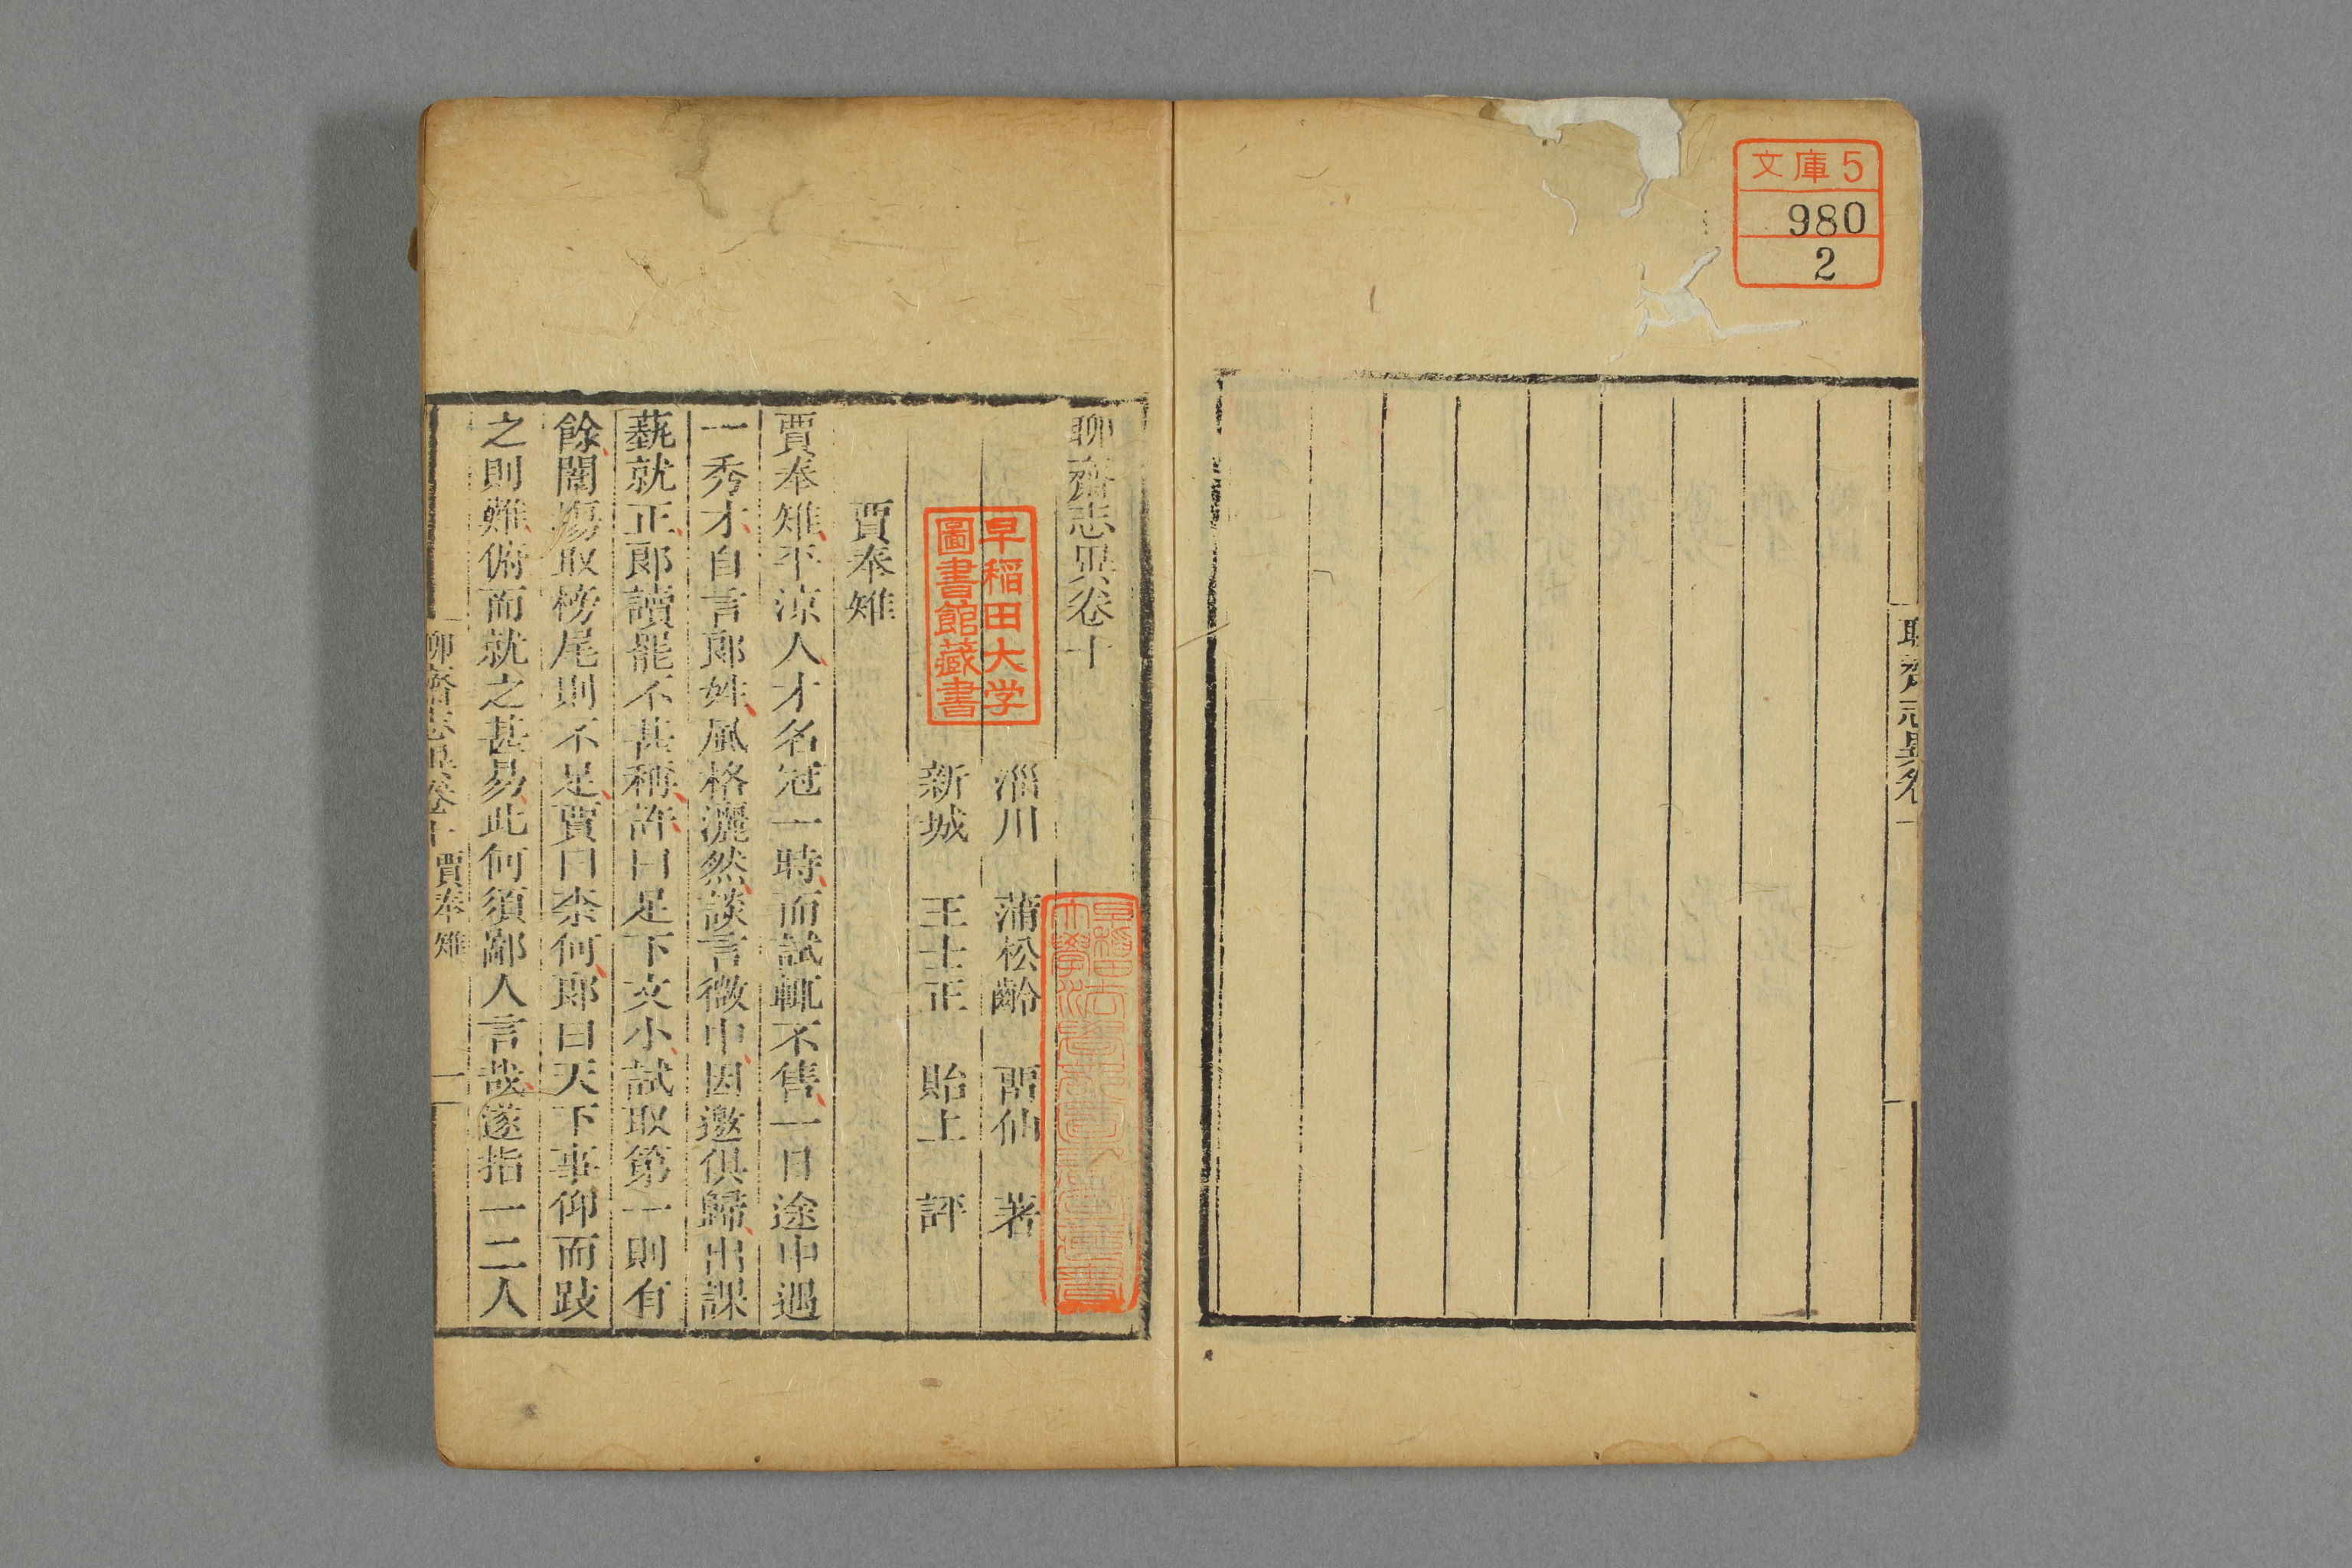 文庫5
980
2
聊齋志異卷十
淄川 蒲松齡 留仙 著
新城 王士正 貽上 評
賈奉雉
賈奉雉平涼人才名冠一時而試輒不售一日途中遇
一秀才自言郎姓風格灑然談言微中因邀俱歸出課
藝就正郎讀罷不甚稱許曰足下文小試取第一則有
餘闈場取榜尾則不足賈曰柰何郎曰天下事仰而跂
之則難俯而就之甚易此何須鄙人言哉遂指一二人
聊齋志異卷十 賈奉雉 一
早稲田大学
圖書館藏書
聊齋志異卷